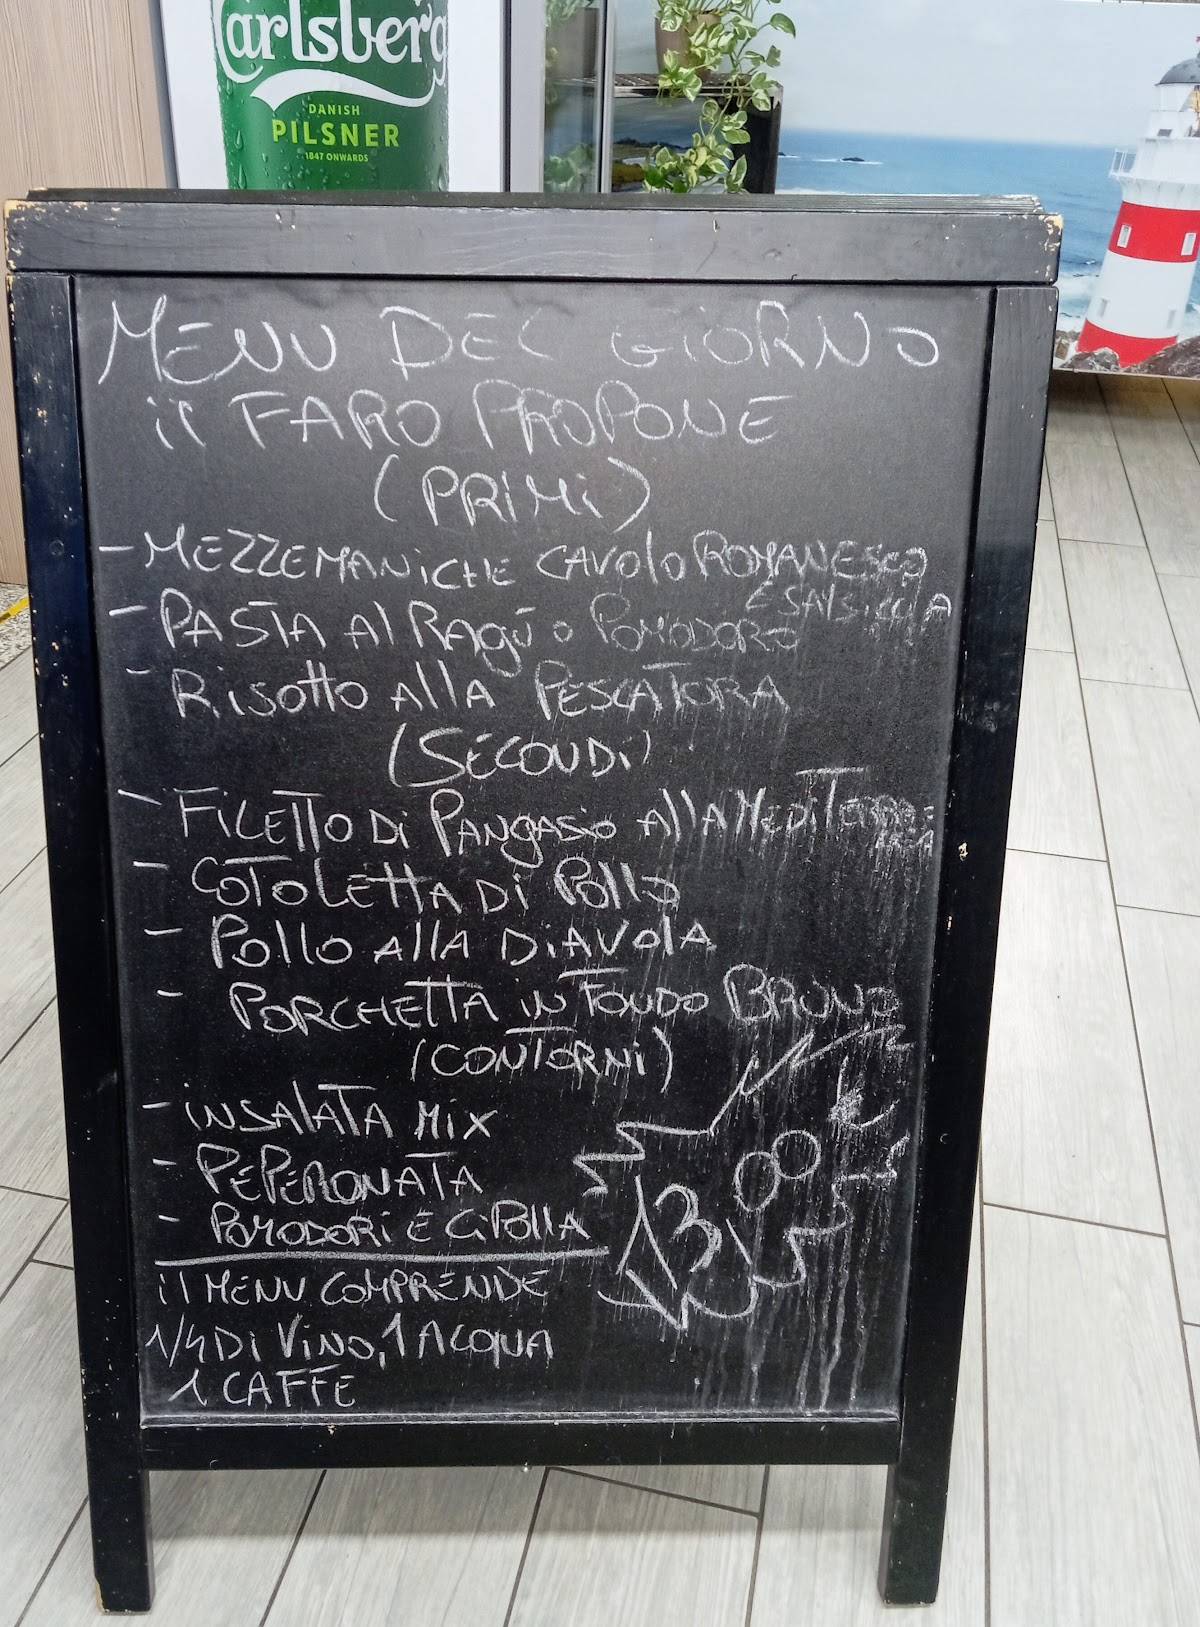 Carlsberg
DANISH
PILSNER
1847 ONWARDS
MENU DEL GiORNO
il FARO PROPONE
(PRiMi)
- MEZZEMANiCHE CAVOlO ROMANESCO
E SALSiCCiA
- PASTA Al RAgù o POMODORO
- RiSOTTO AllA PESCATORA
(SECONDi)
- FiLETTO Di PANgASiO AllA MEDiTERRA
NEA
- COTOLETTA Di Pollo
- Pollo AllA DiAVOlA
- PORCHETTA iN FONDO BRUNO
(CONTORNi)
- iNSAlATA MiX
- PEPERONATA
- POMODORi E CiPOllA
13,00 €
il MENU COMPRENDE
1/4 Di ViNO, 1 ACQUA
1 CAFFE